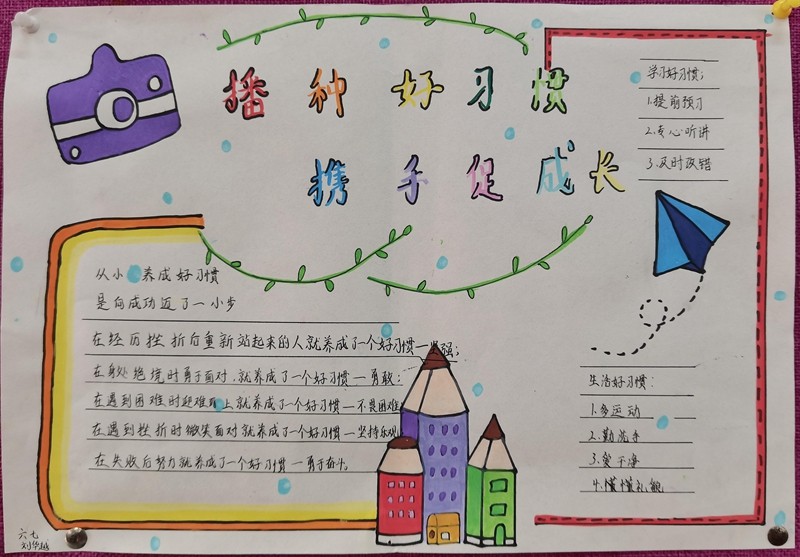 播种好习惯
携手促成长
学习好习惯:
1.提前预习
2.专心听讲
3.及时改错
从小养成好习惯
是向成功迈了一小步
在经历挫折后重新站起来的人就养成了一个好习惯—坚强;
在身处绝境时勇于面对,就养成了一个好习惯—勇敢;
在遇到困难时迎难而上就养成了一个好习惯—不畏困难
在遇到挫折时微笑面对就养成了一个好习惯—坚持乐观
在失败后努力就养成了一个好习惯—勇于奋斗
生活好习惯:
1.多运动
2.勤洗手
3.爱干净
4.懂礼貌
六七
刘华越